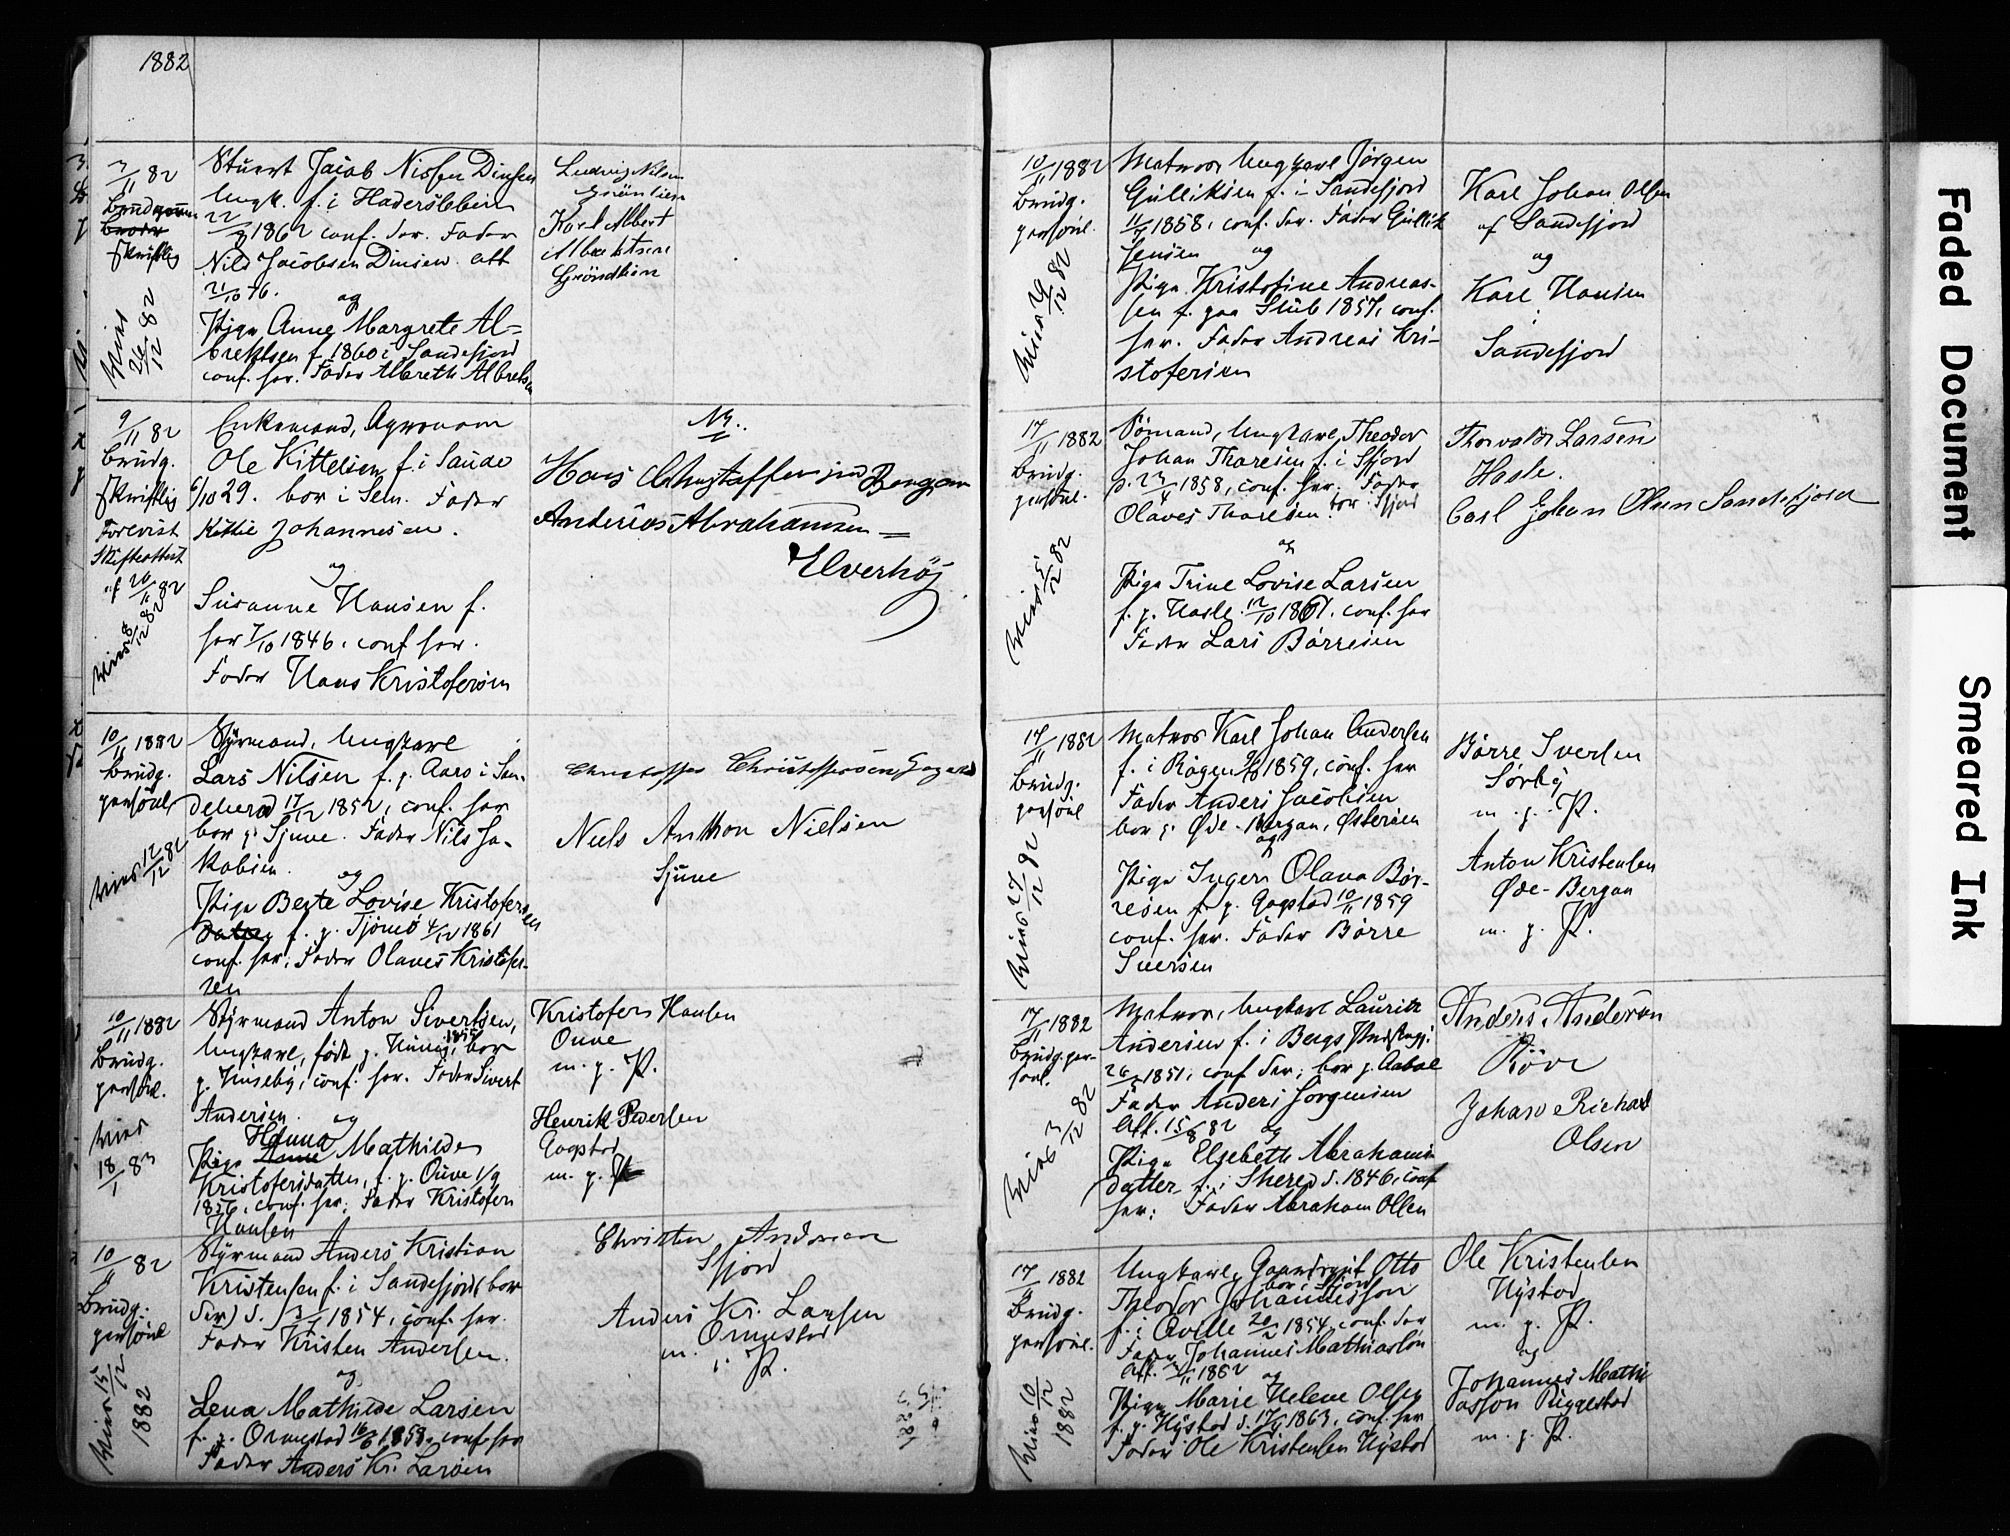 1882
3/11 82
Brudgom
skriftlig
Viet
26/12 82
Stuert Jacob Nissen Dinsen
Ungk. f. i Hadersleben
22/8 1862 conf. der. Fader
Nils Jacobsen Dinsen att
21/10 76.
og
Pige Anne Margrete Al=
brektsen f. 1860 i Sandefjord
conf. her. Fader Albreth Albretsen
Ludvig Nilsen
Karl Albert
9/11 82
Brudg.
skriftlig
Forevist
Skifteattest
af 20/11 82
Viet 8/12 82
Enkemand, Agronom
Ole Kittelsen f. i Saude
6/10 29. bor i Sem. Fader
Kittil Johannesen.
og
Susanne Hansen f.
her 7/10 1846. conf her.
Fader Hans Kristofersen
Hans Christoffersen Bergan
Anderias Abrahamsen =
Elverhöj
10/11 1882
Brudg.
personl.
Viet 12/12 82
Styrmand, Ungkarl
Lars Nilsen f. p. Aarø i San-
deherred 17/12 1852, conf. her
bor p. Sjuve. Fader Nils Ja-
kobsen.
og
Pige Berte Lovise Kristofersen
f. p. Tjømø 4/12 1861
conf. her. Fader Olaves Kristofer-
sen
Christoffer Christoffersen
Niels Anthon Nielsen
Sjuve
10/11 1882
Brudg.
personl.
Viet
18/1 83
Styrmand Anton Sivertsen,
Ungkarl, født p. 1855, bor
p. Huseby, conf. her. Fader Sivert
Andersen.
og
Pige Hanna Mathilde
Kristofersdatter, f. p. Ouve 1/9
1856, conf. her; Fader Kristofer
Hansen
Kristofer Hansen
Ouve
m. p. P.
Henrik Pedersen
Gogstad
m. p. P
10/11 82
Brudg.
personl
Viet 15/12
1882
Styrmand Anders Kristian
Kristensen f. i Sandefjord (bor
der) d. 13/1 1854, conf. her.
Fader Kristen Andersen.
og
Lena Mathilde Larsen
f. p. Ormestad 16/6 1858, conf. her
Fader Anders Kr. Larsen
Christen Andersen
Sfjord
Anders Kr. Larsen
Ormestad
m. p. P.
10/11 1882
Brudg.
personl.
Viet 26/12 82
Matros Ungkarl Jørgen
Gulliksen f. i Sandefjord
1858, conf. der. Fader Gullik
Jensen og
Pige Kristofine Andreas-
sen f. paa Stub 1857, conf.
her. Fader Andreas Kri-
stofersen
Karl Johan Olsen
af Sandefjord
og
Karl Hansen
Sandefjord
17/11 1882
Brudg.
personl.
Viet 5/12 82
Sømand, Ungkarl Theodor
Johan Thoresen f. i Sfjord
d. 23/4 1858, conf. her. Fader
Olaves Thoresen bor Sfjord
og
Pige Trine Lovise Larsen
f. p. Hasle 12/10 1861. conf. her
Fader Lars Børresen
Thorvald Larsen
Hasle.
Carl Johan Olsen Sandefjord
17/11 1882
Brudg.
personl
Viet 27/12 82
Matros Karl Johan Andersen
f. i Røgen 1859, conf. her
Fader Anders Jacobsen
bor p. Øde-Bergan, Østerøen
og
Pige Ingers Olava Bør-
resen f. p. Gogstad 10/11 1859
conf. her. Fader Børre
Iversen
Børre Iversen
Sørby
m. p. P.
Anton Kristensen
Øde-Bergan
m. p. P.
17/11 1882
Brudg. per-
sonl.
Viet 3/12 82
Matros, Ungkarl Lauritz
Andersen f. i Bergs Præstegj.
1851, conf. der; bor p. Aabol
Fader Anders Jørgensen
Att. 15/8 82 og
Pige Elsebeth Abrahams-
datter f. i Skered d. 1846, conf
her; Fader Abraham Olsen
Anders Anderson
Röve
Johan Richard
Olsen
17/11 1882
Brudg.
personl.
Viet 10/12
1882
Ungkarl, Gaardmand Otto
bor i Sfjord
Theodor Johannesson
f. i Qville 20/2 1854, conf. der
Fader Johannes Mathiasson
Att. 1882
og
Pige Marie Helene Olsen
f. p. Nystad d. 17/9 1863, conf. her
Fader Ole Kristensen Nystad
Ole Kristensen
Nystad
m. p. P.
og
Johannes Mathi
asson Puggestad
m. p. P.
Faded Document
Smeared Ink